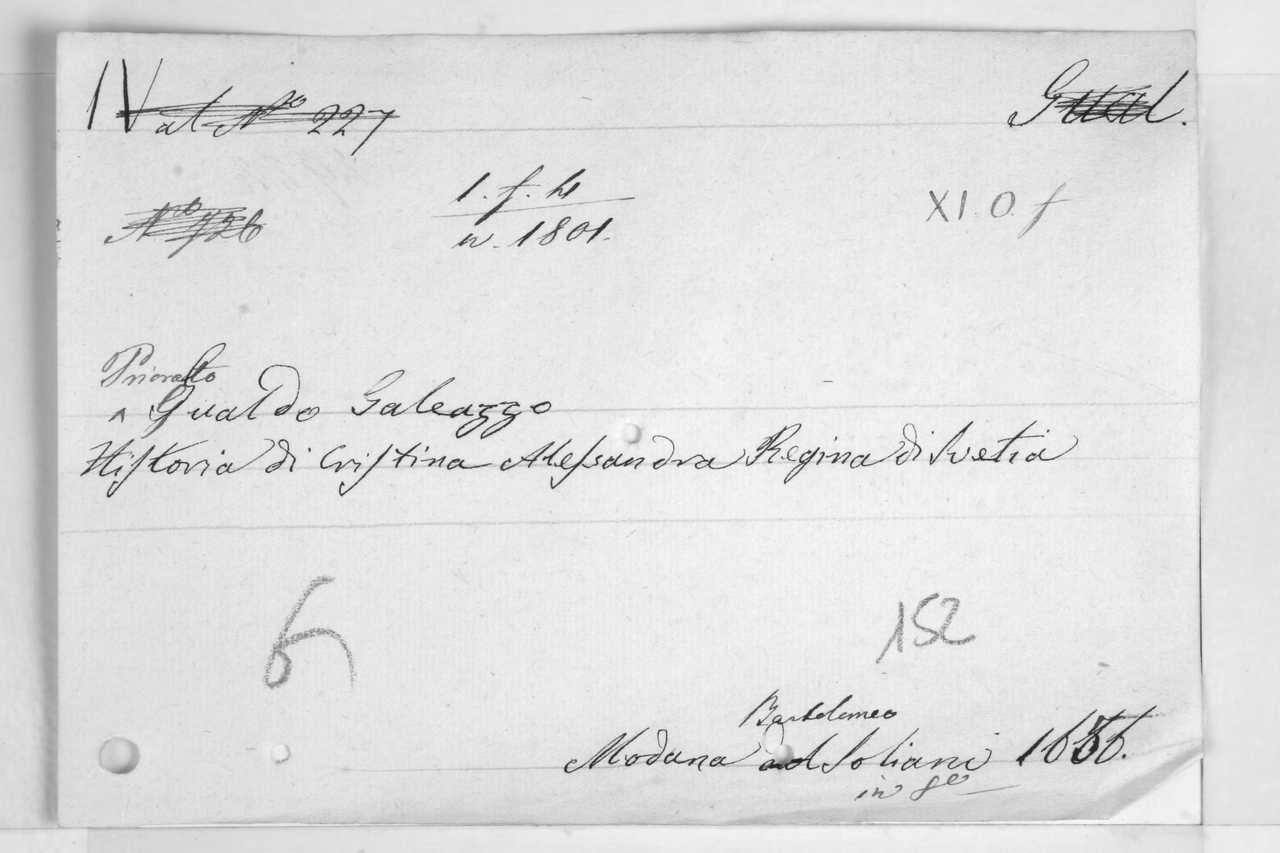 IV at N° 227 Gual.
N° 726
1. f. h
n. 1801.
XI. O. f
Priorato
^ Gualdo Galeazzo
Historia di Cristina Alessandra Regina di Svetia
6
152
Bartolomeo
Modana Soliani 1656.
in 8°